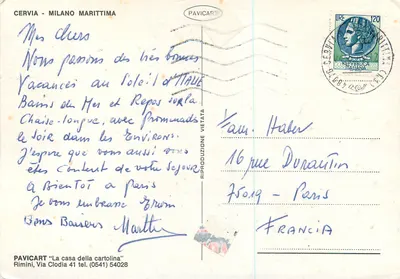 CERVIA - MILANO MARITTIMA
PAVICART
LIRE 120
Mes chers
Nous passons des très bonnes
Vacances au Soleil d'ITALIE
Bains de Mer et Repos sur la
Chaise-longue, avec promenades
le soir dans les Environs.
J'espère que vous aussi vous
êtes content de votre séjour
A Bientôt a Paris
Je vous embrasse
Bons Baisers
RIPRODUZIONE VIETATA
Fam. Haber
16 rue Durantin
75019 - Paris
FRANCIA
PAVICART "La casa della cartolina"
Rimini, Via Clodia 41 tel. (0541) 54028